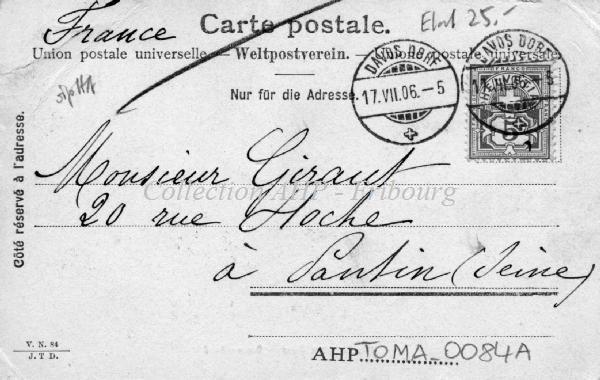 France
Carte postale.
Union postale universelle. — Weltpostverein. — Unione postale universale
Nur für die Adresse.
DAVOS DORF
17.VII.06.–5
DAVOS DORF
5
Côté réservé à l'adresse.
Monsieur Giraut
20 rue Hoche
à Pantin (Seine)
Collection AHP - Fribourg
V. N. 84
J. T. D.
AHP TOMA_0084A